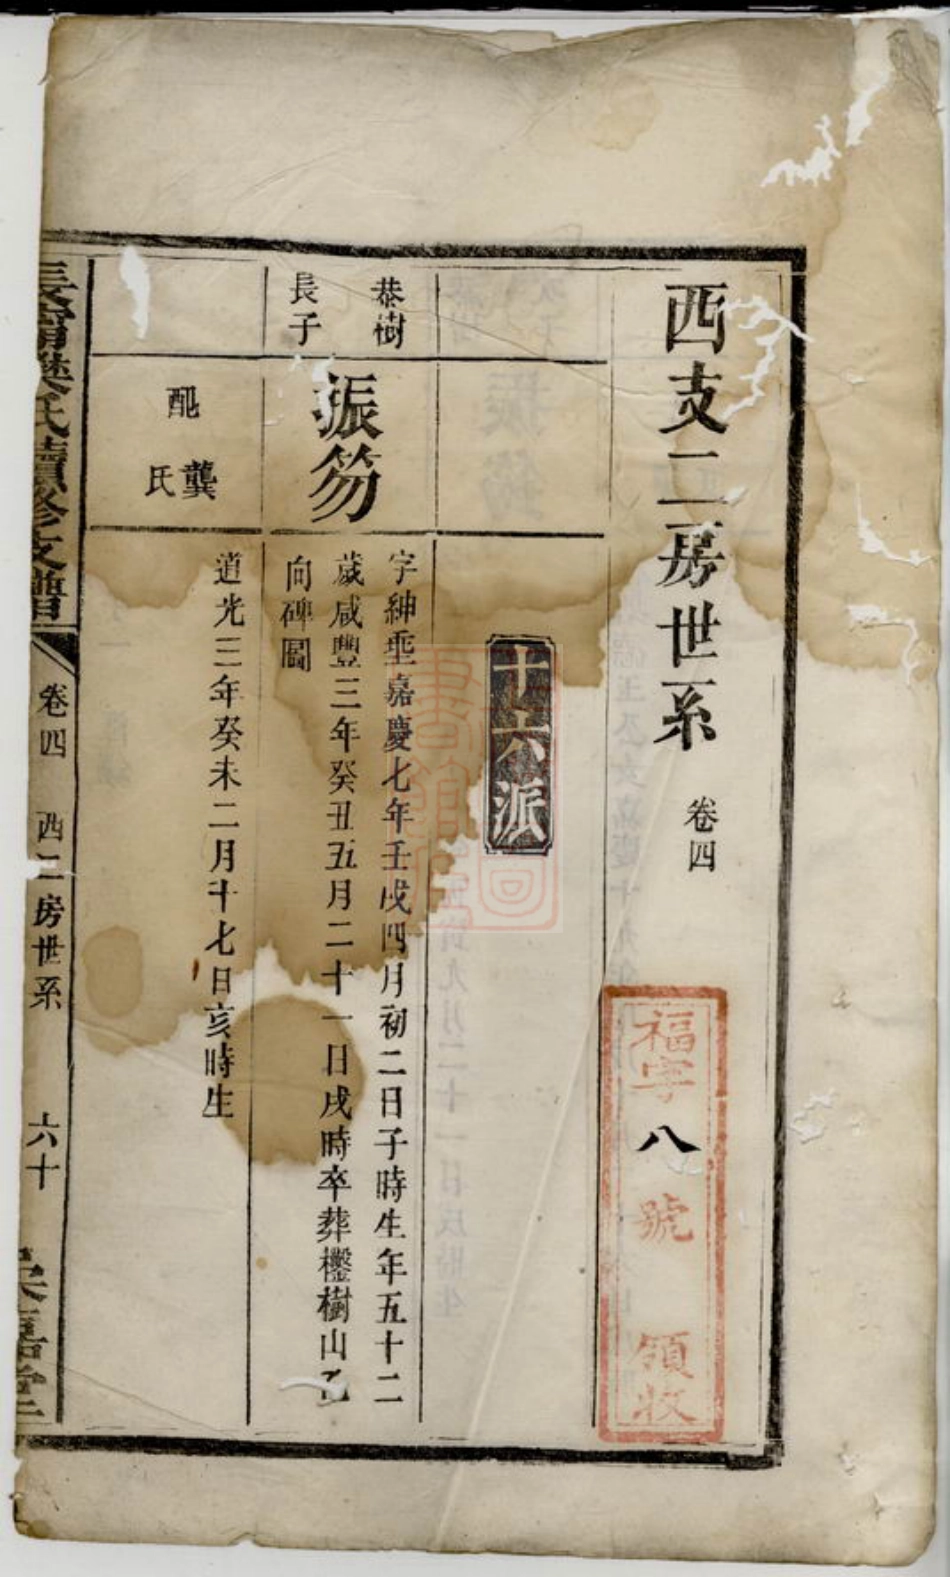 西支二房世系 卷四
福字八號領收
十六派
恭樹
長子
振笏
字紳垂嘉慶七年壬戌四月初二日子時生年五十二
歲咸豐三年癸丑五月二十一日戌時卒葬檵樹山乙
向碑圖
配
龔
氏
道光三年癸未二月十七日亥時生
氏續修支譜 卷四 西二房世系 六十